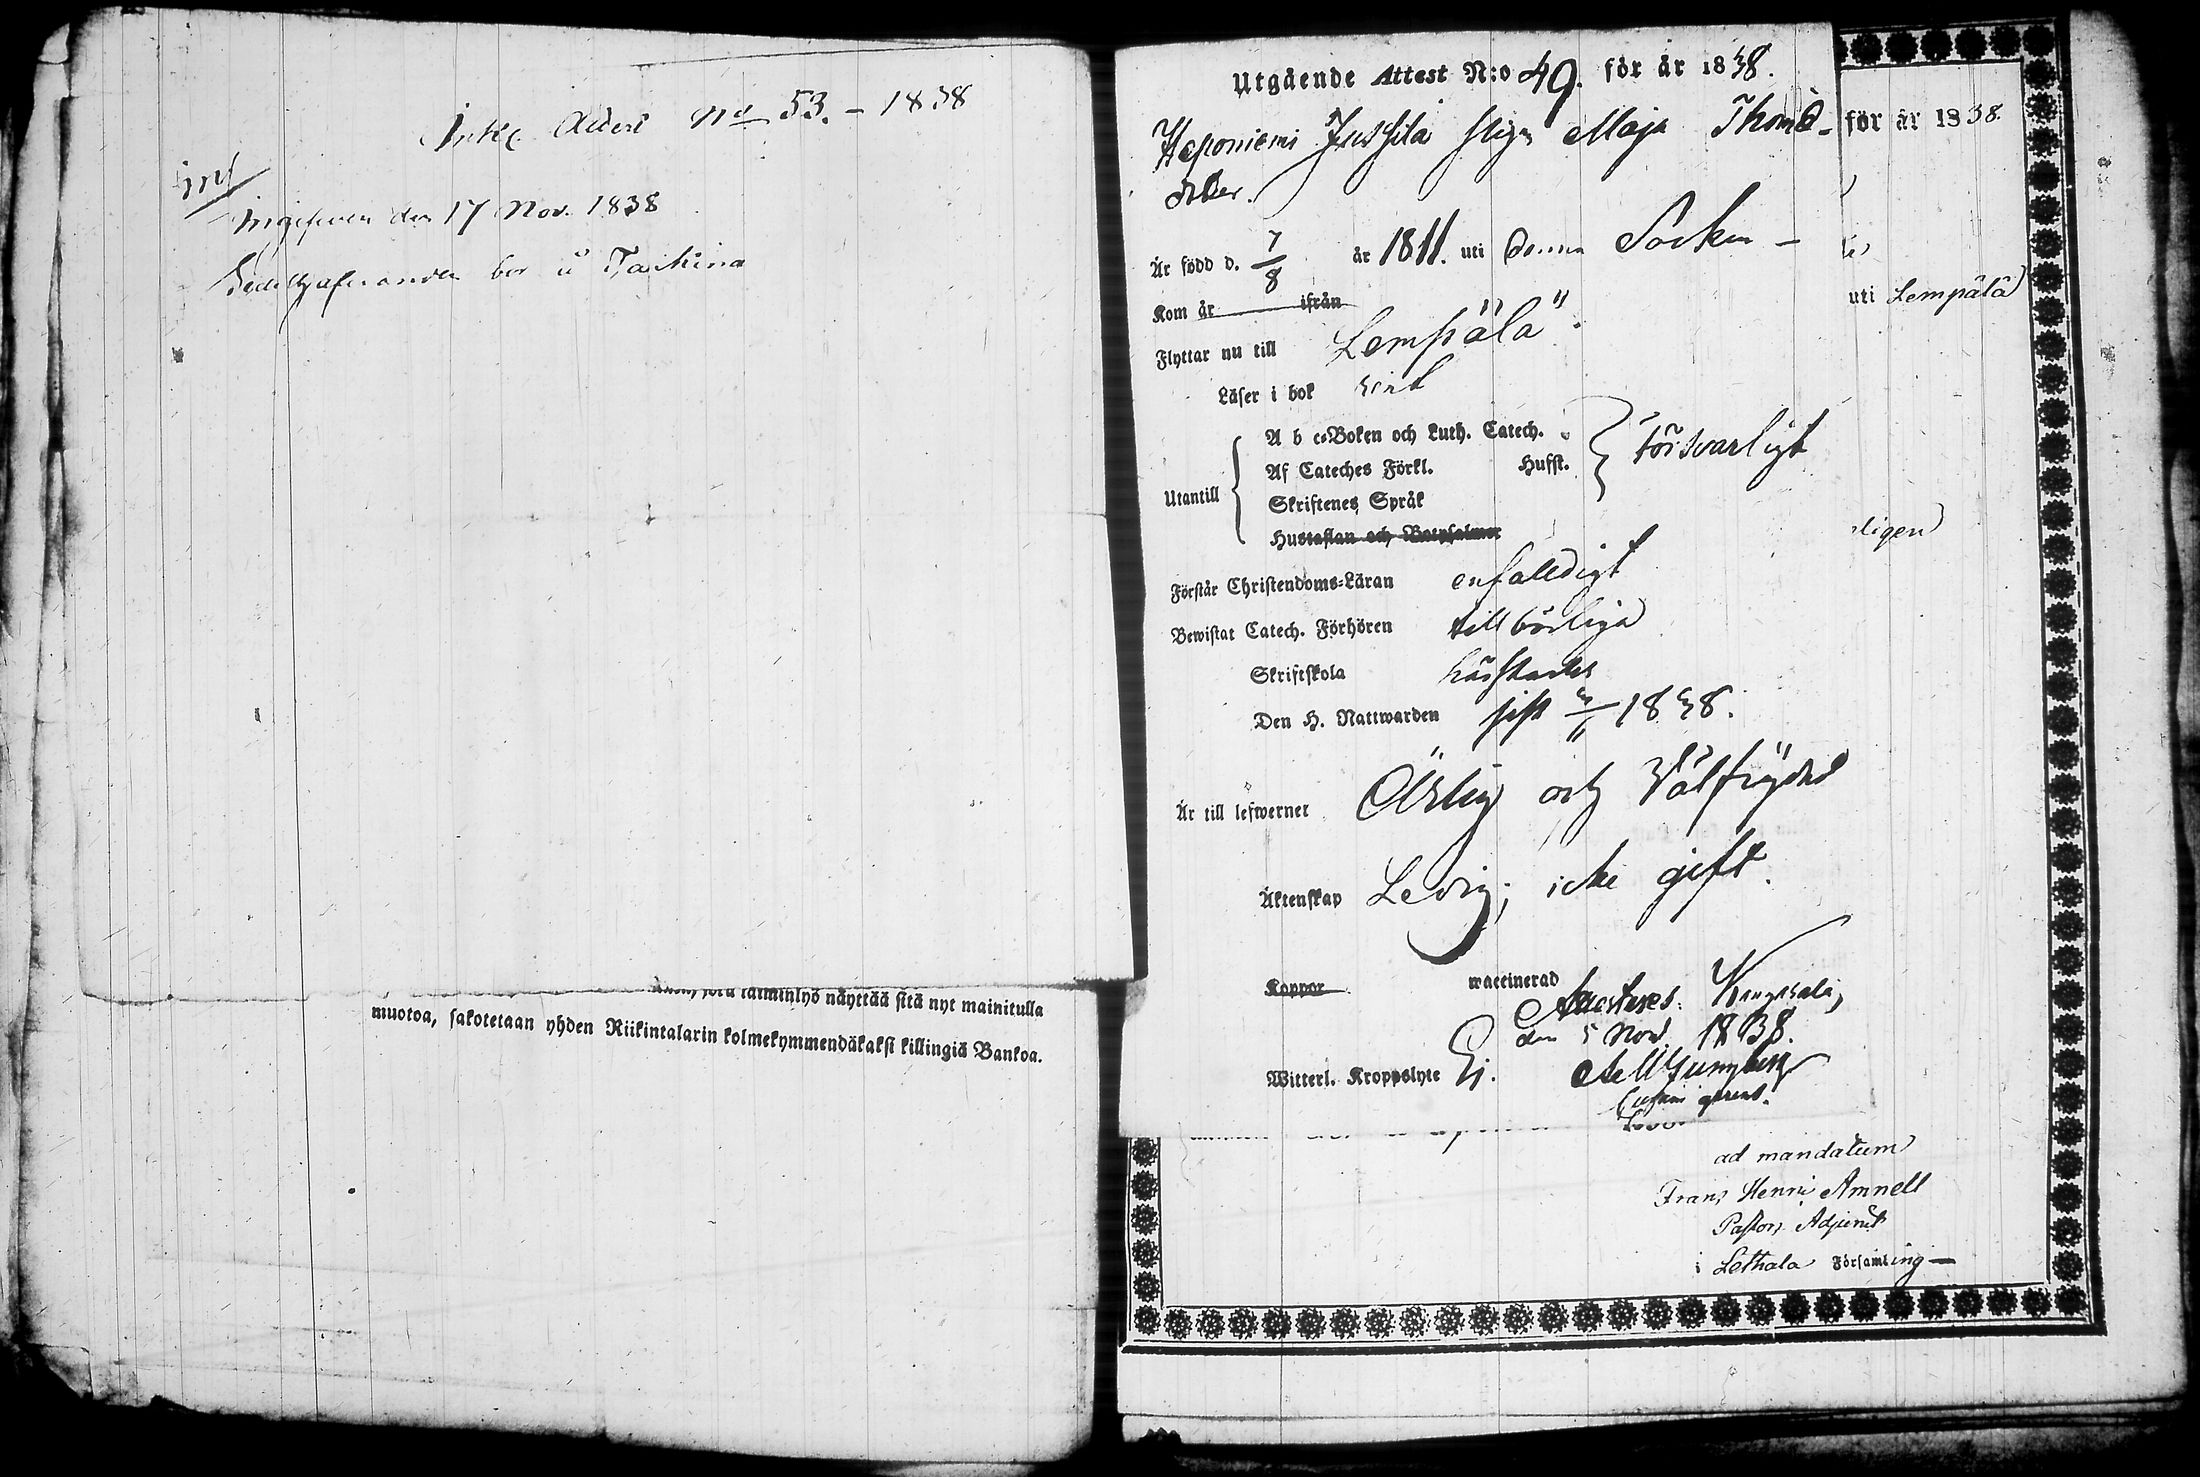 Ink. Attest No 53. - 1838
Ingifven den 17 Nov. 1838
bor å Taikina
näyttää sitä nyt mainitulla
muotoa, sakotetaan yhden Riikintalarin kolmekymmendäkaksi killingiä Bankoa.
Utgående Attest N:o 49. för år 1838.
Haponiemi Jussila Pigan Maja Thomæ-
dotter.
Är född d. 7/8 år 1811. uti denna Socken -
Kom år ifrån
Flyttar nu till Lempälä".
Läser i bok rent
Utantill
A b c-Boken och Luth. Catech.
Af Cateches Förkl. Husst.
Skriftenes Språk
Hustaflan och Botpsalmer
försvarligt
Förstår Christendoms-Läran enfaldigt
Bewistat Catech. Förhören tillbörliga
Skriftskola
Den H. Nattwarden sist 4/11 1838.
Är till lefwernet Ärlig och Välfrejdad
Äktenskap Ledig; icke gift.
Koppor waccinerad
Attesteras. Kangasala,
den 5 Nov. 1838.
Witterl. Kroppslyte Ej.
för år 1838.
uti Lempälä
ligen
ad mandatum
Frans Henric Amnell
Pastors Adjunct
i Lethala Församling —